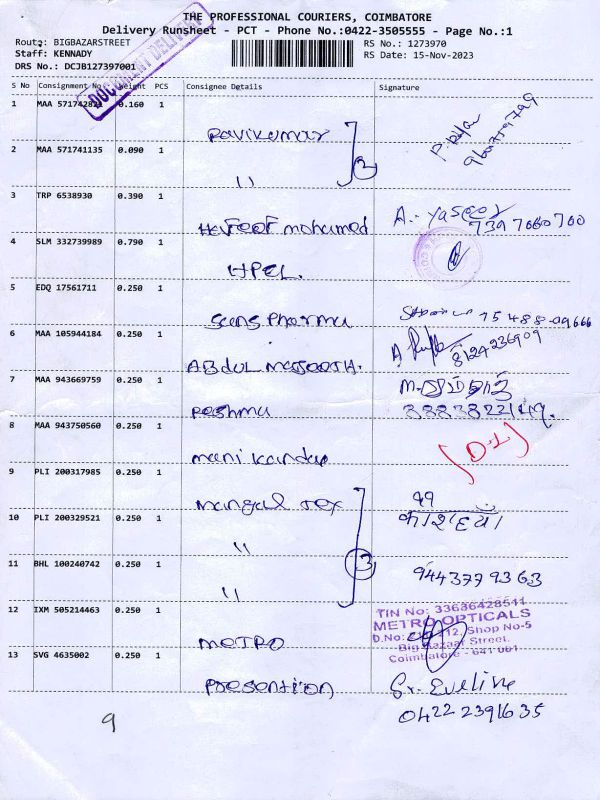 THE PROFESSIONAL COURIERS, COIMBATORE
Delivery Runsheet - PCT - Phone No.:0422-3505555 - Page No.:1
Route: BIGBAZARSTREET
Staff: KENNADY
DRS No.: DCJB127397001
RS No.: 1273970
RS Date: 15-Nov-2023
DOCUMENT DELIVERY
S No Consignment No Weight PCS Consignee Details Signature
1 MAA 571742821 0.160 1 Ravikumar
2 MAA 571741135 0.090 1 " 2
3 TRP 6538930 0.390 1 mohamed A. Yaseen 7397060700
4 SLM 332739989 0.790 1 HPCL.
5 EDQ 17561711 0.250 1 Sens Pharma 75488-09666
6 MAA 105944184 0.250 1 ABDUL 8124236909
7 MAA 943669759 0.250 1 Reshma
8 MAA 943750560 0.250 1 manikandan
9 PLI 200317985 0.250 1 mangal Tex
10 PLI 200329521 0.250 1 "
11 BHL 100240742 0.250 1 " 3 9443779363
12 IXM 505214463 0.250 1 METRO
TIN No: 33636428511
METRO OPTICALS
D.No: 12, Shop No-5
Big Bazaar Street,
Coimbatore - 641 001
13 SVG 4635002 0.250 1 Presention Sr. Eveline
0422 2391635
9